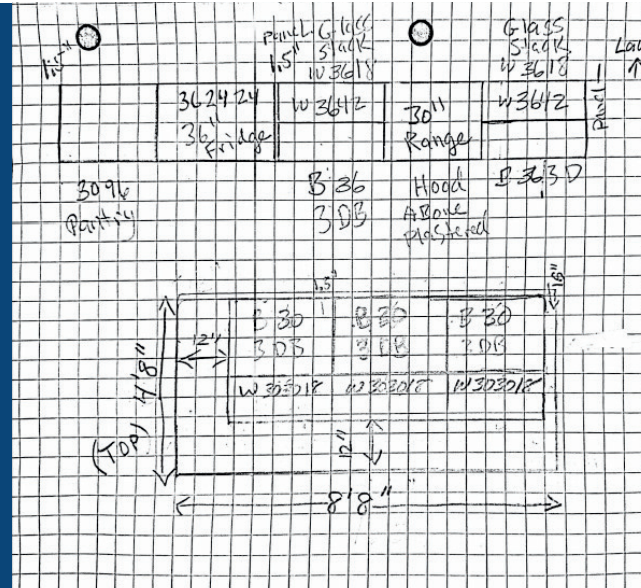 1.5"
Panel
1.5"
Glass
Stack
W3618
Glass
Stack
W3618
Panel
362424
36"
Fridge
W3642
30"
Range
W3642
3096
Pantry
B36
3DB
Hood
Above
plastered
B363D
1.5"
16"
B30
3DB
B30
3DB
B30
3DB
12"
W303018
W303018
W303018
4'8"
(TOP)
12"
8'8"